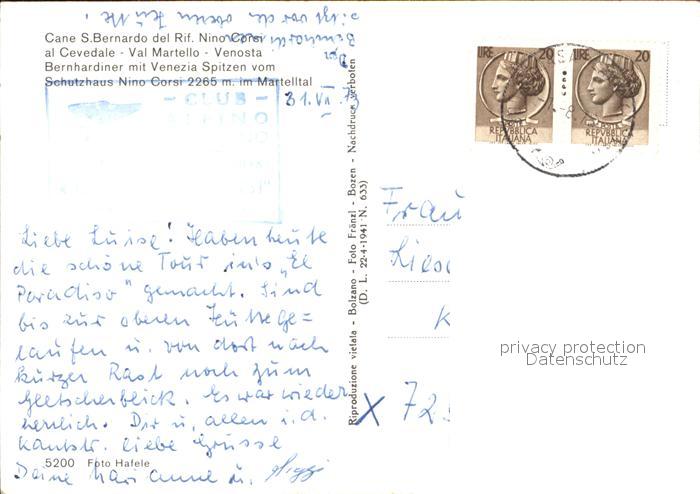 Der
Bernhardiner
sitzt vor der oberen Hütte!
Cane S.Bernardo del Rif. Nino Corsi
al Cevedale - Val Martello - Venosta
Bernhardiner mit Venezia Spitzen vom
Schutzhaus Nino Corsi 2265 m. im Martelltal
- CLUB -
ALPINO
31. VII. 73
Liebe Luise! Haben heute
die schöne Tour in's „El
Paradiso" gemacht. Sind
bis zur oberen Hütte ge=
laufen u. von dort nach
kurzer Rast noch zum
Gletscherblick. Es war wieder
herrlich. Dir u. allen i. d.
Kantstr. liebe Grüsse
Deine Marianne u.
5200 Foto Hafele
Riproduzione vietata - Bolzano - Foto Fränzl - Bozen - Nachdruck verboten
(D. L. 22-4-1941 N. 633)
LIRE 20
REPVBBLICA
ITALIANA
LIRE 20
REPVBBLICA
ITALIANA
Frau
Lies
K
X 72
privacy protection
Datenschutz